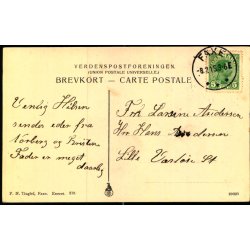 VERDENSPOSTFORENINGEN
(UNION POSTALE UNIVERSELLE)
BREVKORT – CARTE POSTALE
FAXE
Venlig Hilsen
sender eder fra
Norberg og Kristen
Fader er meget
daarlig
Frk Larsine Andersen
Hr. Hans Andersen
Lille
St
P. N. Tinglef, Faxe. Eneret.